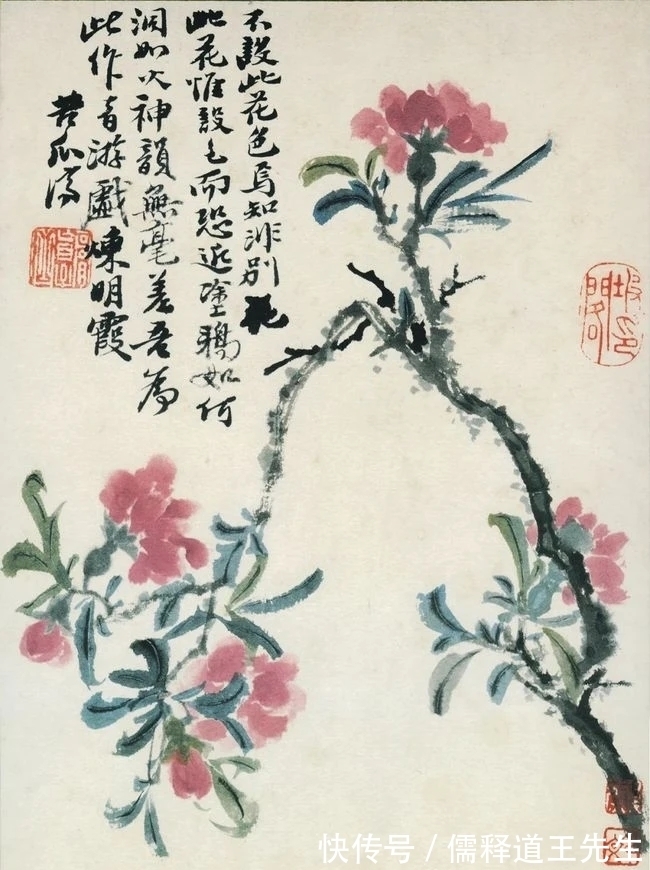 不設此花色焉知非別花
此花惟設色而恐近塗鴉如何
洞如火神韻無毫差吾為
此作者游戲煉明霞
苦瓜濟
快传号 / 儒释道王先生